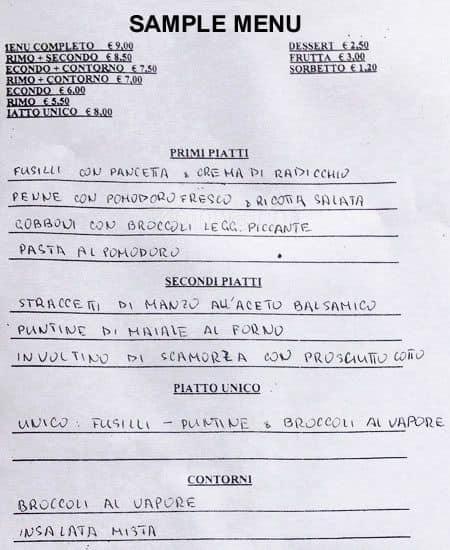 SAMPLE MENU
IENU COMPLETO € 9,00
RIMO + SECONDO € 8,50
ECONDO + CONTORNO € 7,50
RIMO + CONTORNO € 7,00
ECONDO € 6,00
RIMO € 5,50
IATTO UNICO € 8,00
DESSERT € 2,50
FRUTTA € 3,00
SORBETTO € 1,20
PRIMI PIATTI
FUSILLI CON PANCETTA & CREMA DI RADICCHIO
PENNE CON POMODORO FRESCO & RICOTTA SALATA
GOBBONI CON BROCCOLI LEGG. PICCANTE
PASTA AL POMODORO
SECONDI PIATTI
STRACCETTI DI MANZO ALL'ACETO BALSAMICO
PUNTINE DI MAIALE AL FORNO
INVOLTINO DI SCAMORZA CON PROSCIUTTO COTTO
PIATTO UNICO
UNICO: FUSILLI - PUNTINE & BROCCOLI AL VAPORE
CONTORNI
BROCCOLI AL VAPORE
INSALATA MISTA